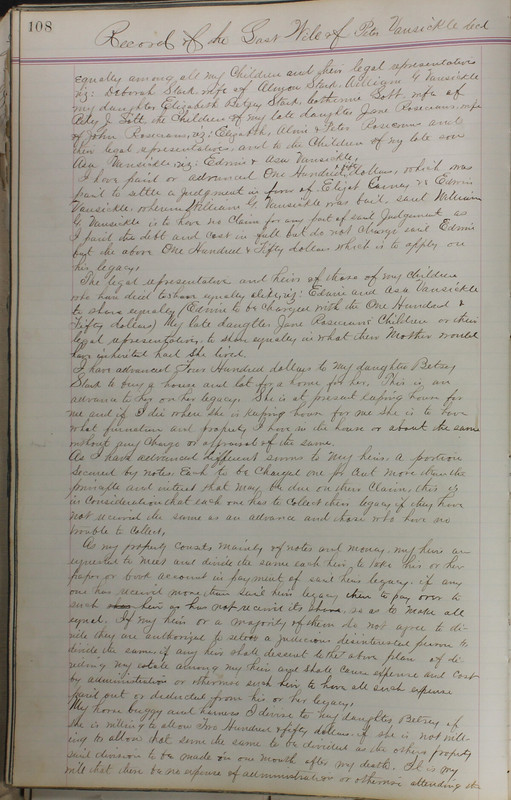 108
Record of the Last Will of Peter Vansickle decd
equally among all my Children and their legal representatives
viz: Deborah Stark wife of Alonzo Stark, William G Vansickle
my daughter Elizabeth Betsey Stark, Catherine Gott wife of
J. Gott, the Children of my late daughter Jane Rosecrans, wife
of John Rosecrans, viz; Elizabeth, & Peter Rosecrans and
their legal representatives, and to the Children of my late son
Asa Vansickle, viz: Edwin & Asa Vansickle,
I have paid or advanced One Hundred & fifty dollars, which was
paid to settle a judgment in favor of Elijah vs Edwin
Vansickle, wherein William G. Vansickle was bail, said William
G. Vansickle is to have no Claim for any part of said Judgment as
I paid the debt and cost in full but do not Charge said Edwin
but the above One Hundred & Fifty dollars which is to apply on
his legacy.
The legal representative and heirs of those of my Children
who have died to share equally viz: Edwin and Asa Vansickle
to share equally (Edwin to be Charged with the One Hundred &
Fifty dollars) My late daughter Jane Rosecrans Children or their
legal representatives, to share equally in what their Mother would
have inherited had she lived.
I have advanced Four Hundred dollars to my daughter Betsey
Stark to buy a house and lot for a home for her. This is an
advance to her on her legacy. She is at present keeping house for
me and if I die where she is keeping house for me she is to have
what furniture and property I have in the house or about the same
without any Charge or appraisal of the same.
As I have advanced different sums to my heirs a portion
secured by notes Each to be Charged one per Cent more than the
principle and interest that may be due on their Claim, this is
in Consideration that each one has to Collect their legacy if they have
not received the same as an advance and those who have no
trouble to Collect,
As my property consists mainly of notes and money, my heirs are
requested to meet and divide the same each heir to take his or her
paper or book account in payment of said heirs legacy, if any
one has received more than said heirs legacy then to pay over to
such heir as has not received its share, so as to make all
equal. If my heirs or a majority of them do not agree to di-
vide they are authorized to select a judicious disinterested person to
divide the same, if any heir shall dissent to the above plan of di-
viding my estate among my heirs and shall cause expense and cost
by administration or otherwise such heir to have all such expense
paid out or deducted from his or her legacy,
My horse buggy and harness I devise to my daughter Betsey if
she is willing to allow Two Hundred & fifty dollars, if she is not will-
ing to allow that sum the same to be divided as the other property
said division to be made in one month after my death. It is my
will that there be no expense of administration or otherwise attending